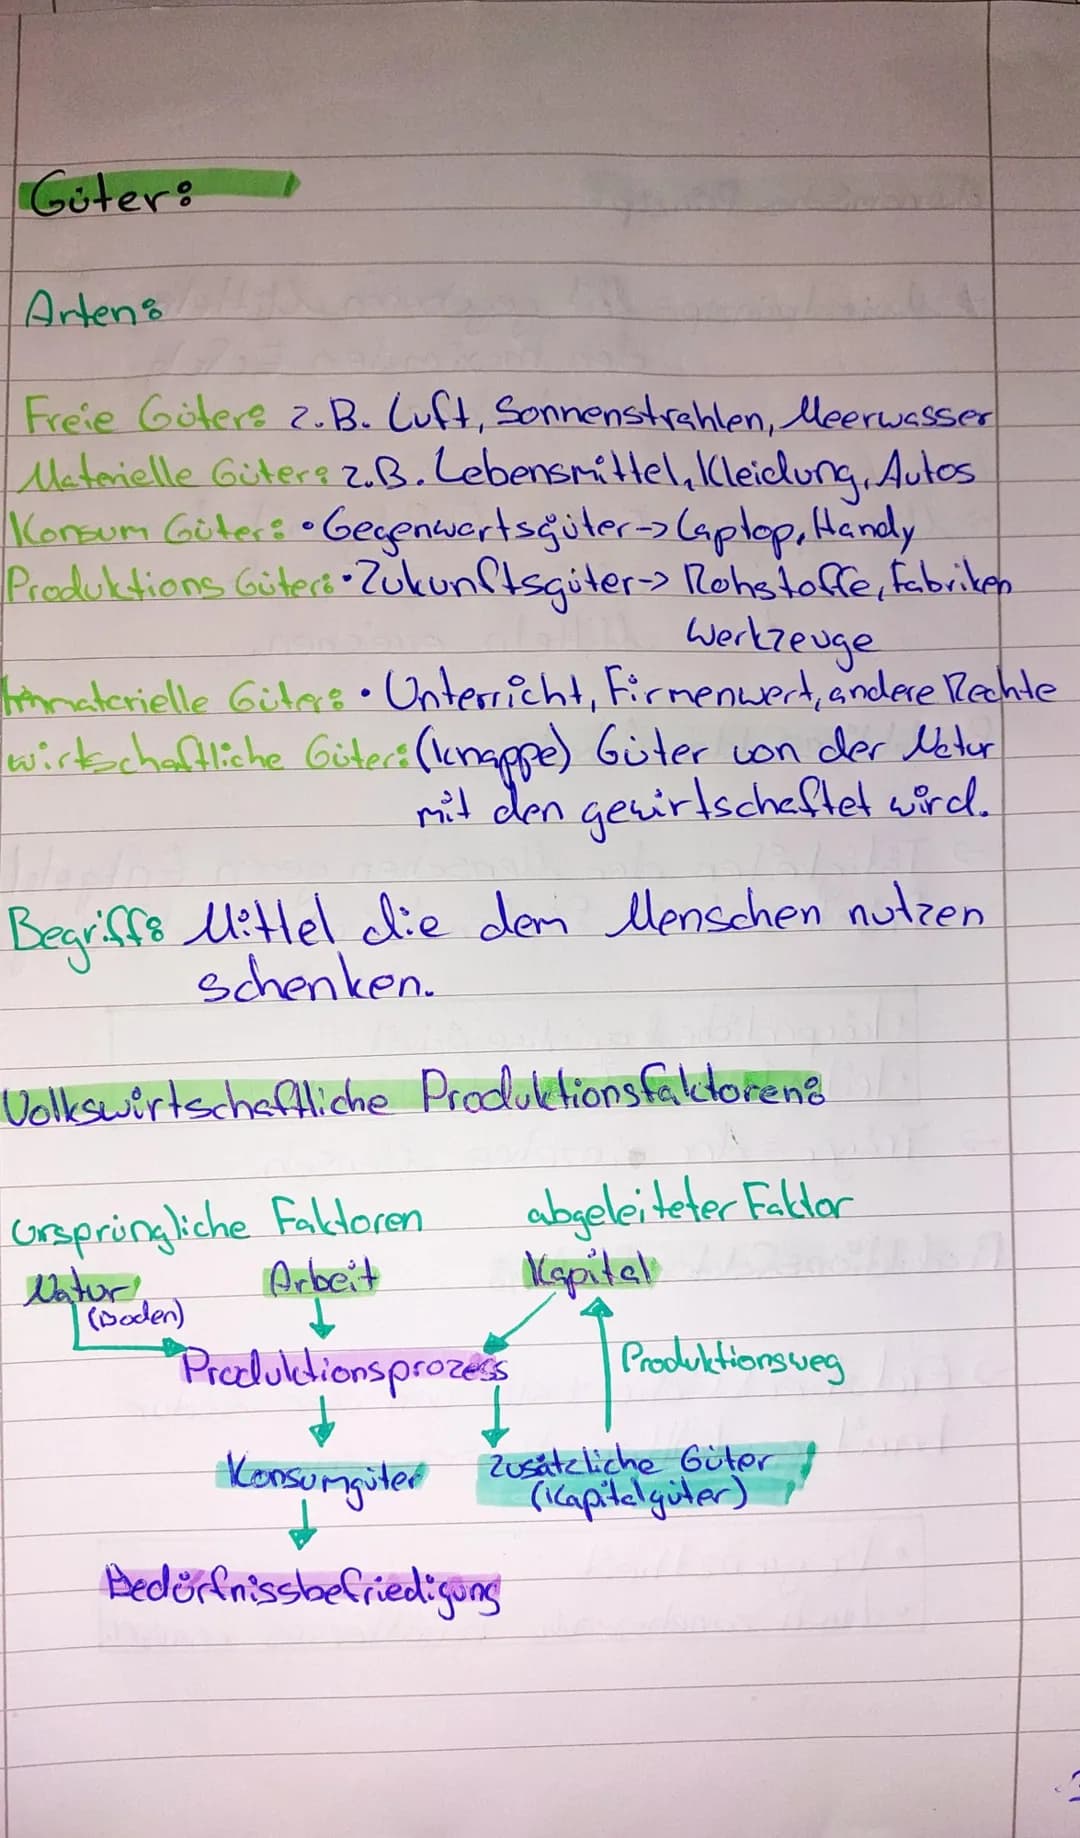 Güter:
Arten:
Freie Güter: z.B. Luft, Sonnenstrahlen, Meerwasser
Materielle Güter: z.B. Lebensmittel, Kleidung, Autos
Konsum Güter: • Gegenwartsgüter -> Laptop, Handy
Produktions Güter: • Zukunftsgüter -> Rohstoffe, Fabriken
Werkzeuge
Immaterielle Güter: • Unterricht, Firmenwert, andere Rechte
wirtschaftliche Güter: (knappe) Güter von der Natur
mit den gewirtschaftet wird.
Begriff: Mittel die dem Menschen nutzen
schenken.
Volkswirtschaftliche Produktionsfaktoren:
ursprüngliche Faktoren abgeleiteter Faktor
Natur Arbeit Kapital
(Boden)
Produktionsprozess Produktionsweg
Konsumgüter Zusätzliche Güter
(Kapitalgüter)
Bedürfnissbefriedigung